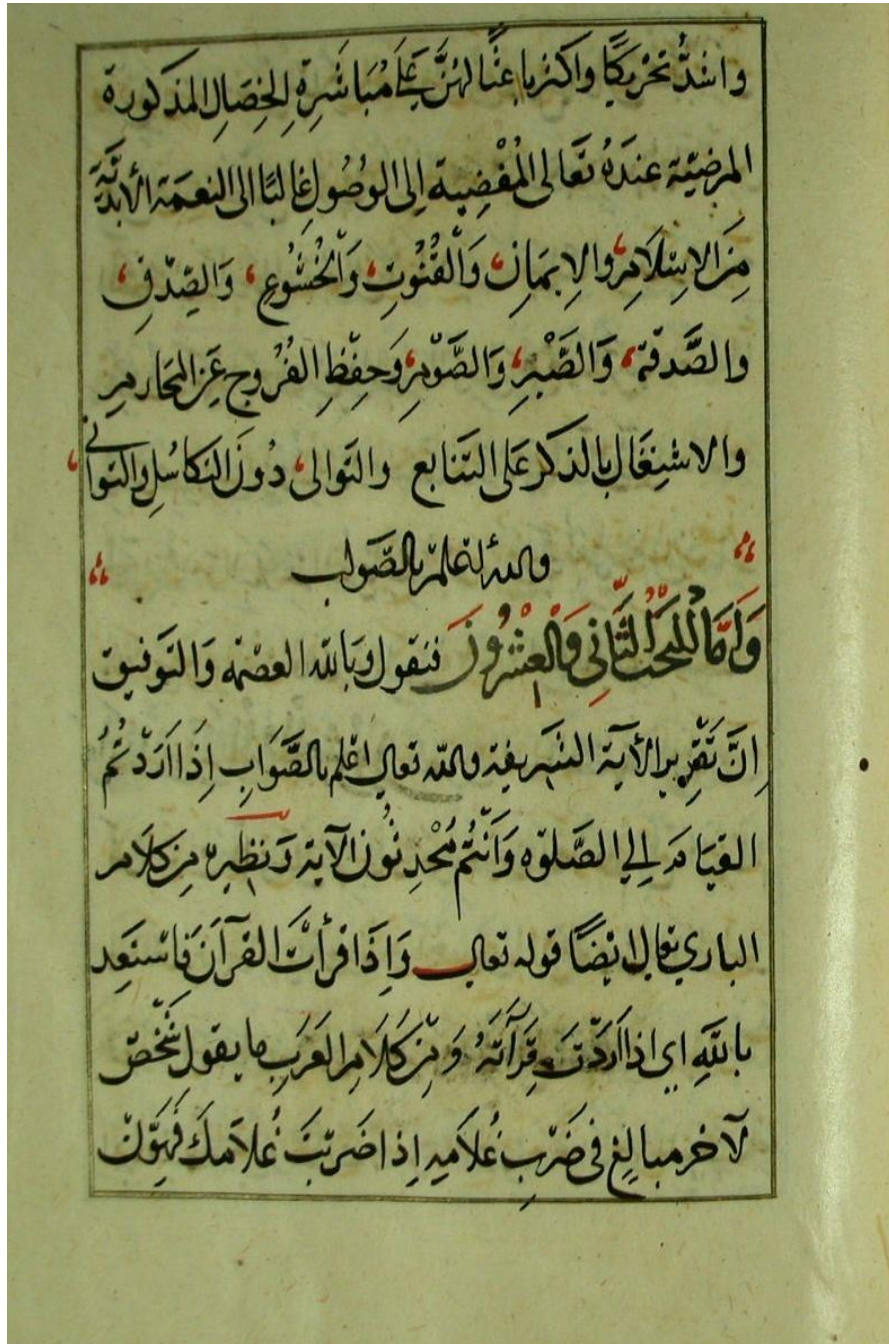 واشدُّ تحْرِيكًا واكثر باعثًا لهُنَّ عَلَى مُبَاشَرةِ الخِصَالِ المذكورة
المرضيّة عندَهُ تعَالى المُفْضِيةِ اِلى الوُصُولِ غالبًا الى النعمَة الأبديَّة
مِنَ الاِسْلَامِ، والاِيمَانِ، وَالْقُنُوتِ، وَالْخُشُوعِ، وَالصِّدْقِ،
والصَّدقة، وَالصَّبْرِ، وَالصَّوْمِ، وَحِفْظِ الفُرُوجِ عَنِ المحَارمِ
والاشتِغَال بالذكر عَلى التتابع والتّوالى، دُونَ التكاسُلِ والتوانى،
والله اعلم بالصَّواب
وَاَمَّا المبْحَث الثَّانِي وَالْعِشْرُونَ فنقول وَبَالله العصْمه وَالتوفيق
اِنَّ تَقْرِير الآية الشريفة والله تعالى اعْلم بالصَّوَابِ إِذَا اَرَدْتُمُ
القيامَ اِلي الصَّلوٰه وَاَنْتُم مُحْدِثُون الآية وَنظيره مِنْ كلَام
الباري تعالى ايْضًا قوله تعالى وَاِذَا قرأتَ القرآنَ فاسْتعِد
بالله اي اذا اَرَدْتَ قِرَآتَهُ وَمِنْ كَلَامِ العَرَبِ ما يقول شَخْصٌ
لآخر مبالِغ فى ضَرْبِ غُلَامِهِ اِذا ضَربْتَ غُلَامَكَ فهَوِّنْ